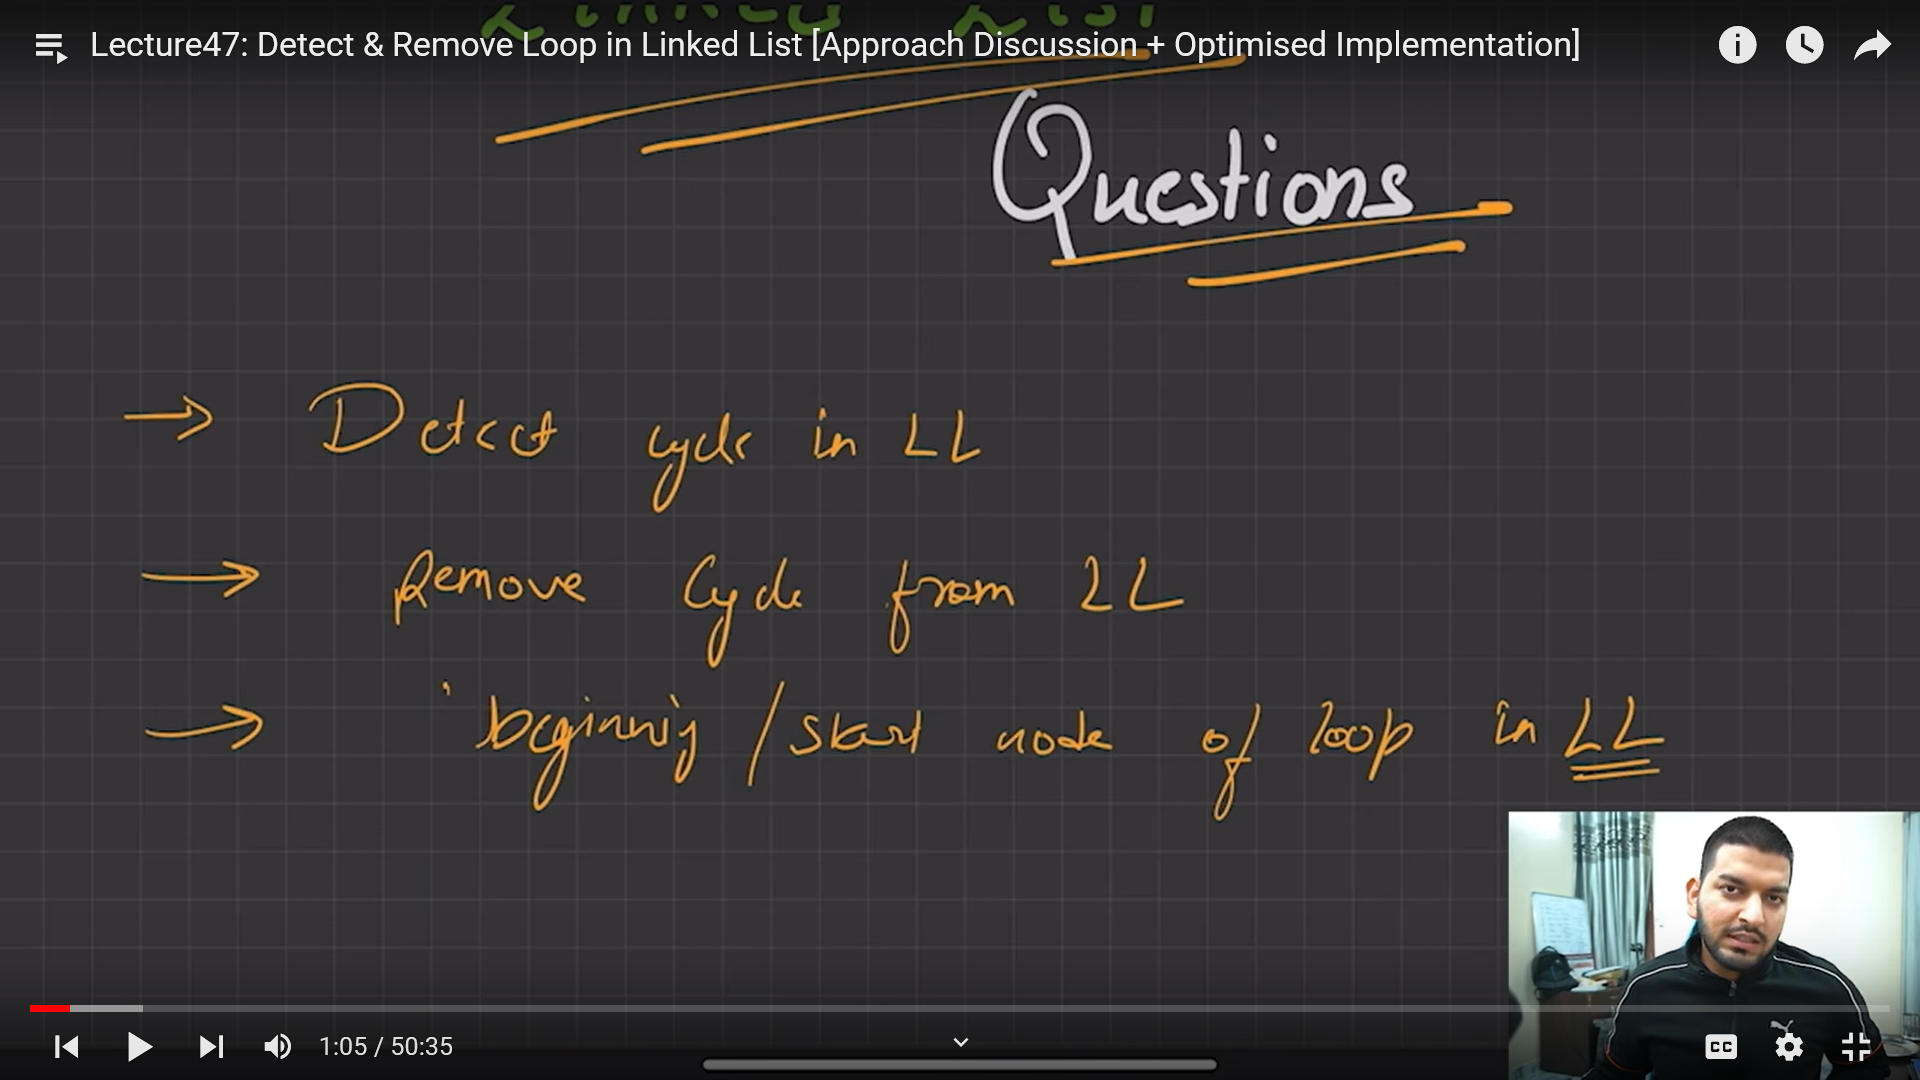 Linked List
Lecture47: Detect & Remove Loop in Linked List [Approach Discussion + Optimised Implementation]
Questions
→ Detect cycle in LL
→ Remove Cycle from LL
→ beginning / start node of loop in LL
1:05 / 50:35
CC